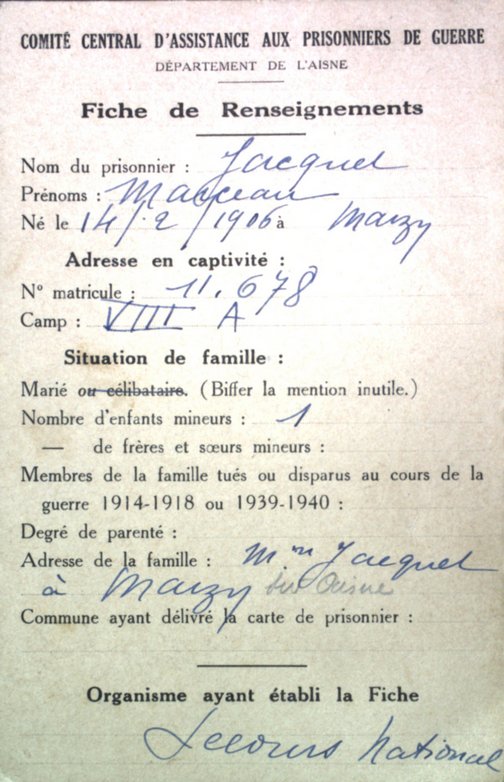 COMITÉ CENTRAL D'ASSISTANCE AUX PRISONNIERS DE GUERRE
DÉPARTEMENT DE L'AISNE
Fiche de Renseignements
Nom du prisonnier : Jacquel
Prénoms : Marceau
Né le 14/2/1906 à Maizy
Adresse en captivité :
N° matricule : 11.678
Camp : VIII A
Situation de famille :
Marié ou célibataire. (Biffer la mention inutile.)
Nombre d'enfants mineurs : 1
— de frères et sœurs mineurs :
Membres de la famille tués ou disparus au cours de la
guerre 1914-1918 ou 1939-1940 :
Degré de parenté :
Adresse de la famille : Mme Jacquel
à Maizy Aisne
Commune ayant délivré la carte de prisonnier :
Organisme ayant établi la Fiche
Secours National